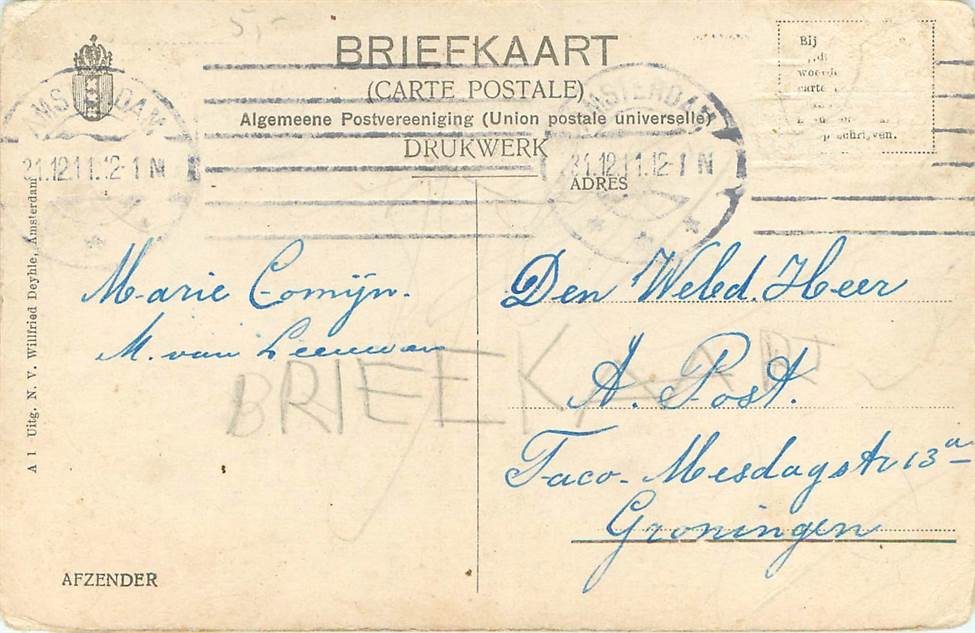 5,-
BRIEFKAART
(CARTE POSTALE)
Algemeene Postvereeniging (Union postale universelle)
DRUKWERK
ADRES
Bij
AMSTERDAM
31.12.11.12-1 N
AMSTERDAM
31.12.11.12-1 N
Marie Comijn.
M. van Leeuwen
BRIEFKAART
Den Weled. Heer
A. Post.
Taco-Mesdagstr 13a
Groningen
AFZENDER
A 1 Uitg. N. V. Willfried Deyhle, Amsterdam